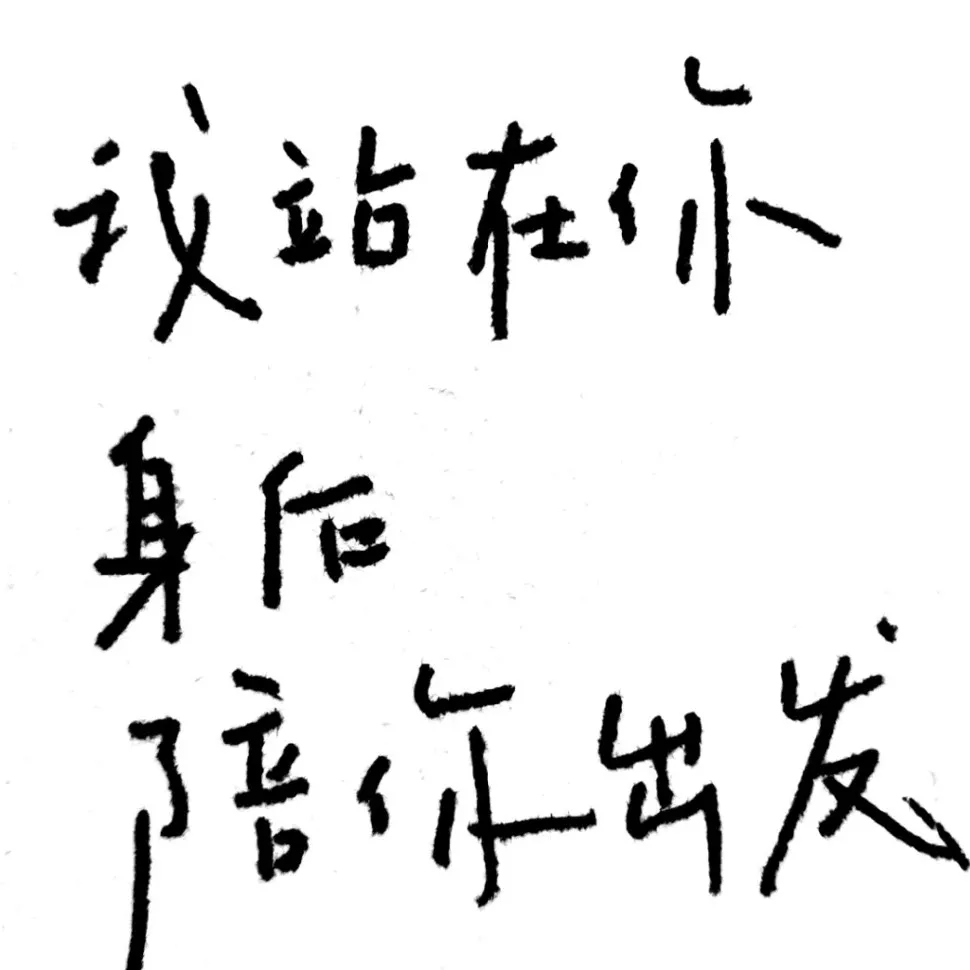 我站在你
身后
陪你出发